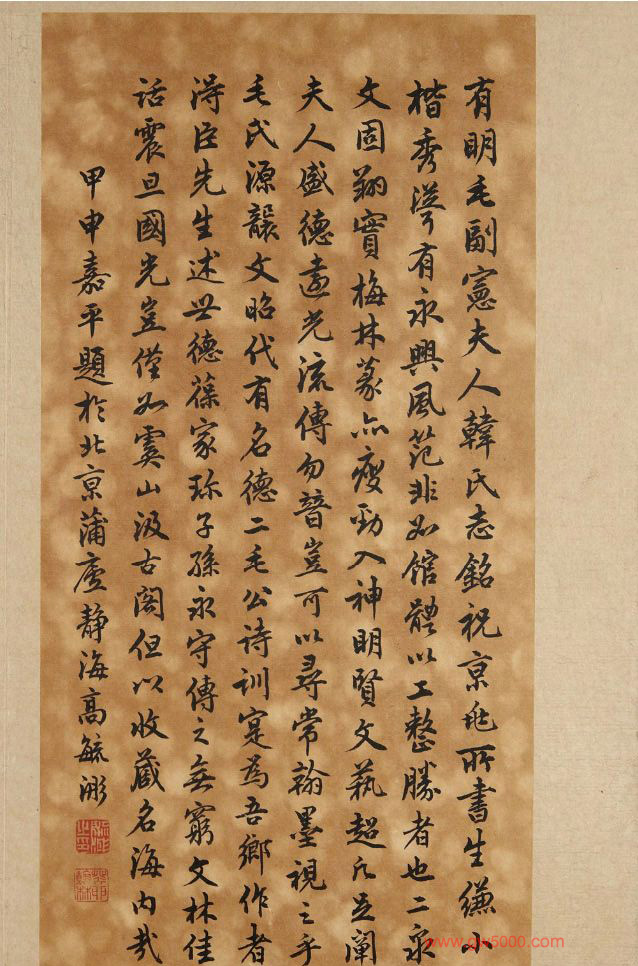 有明毛副憲夫人韓氏志銘祝京兆所書生縑小
楷秀澤有永興風范非如館體以工整勝者也二泉
文固翔實梅林篆亦瘦勁入神明賢文藝超凡豆闡
夫人盛德遺光流傳勿替豈可以尋常翰墨視之乎
毛氏源襲文昭代有名德二毛公詩訓寔為吾鄉作者
得臣先生述世德葆家珍子孫永守傳之無窮文林佳
話震旦國光豈僅如虞山汲古閣但以收藏名海內哉
甲申嘉平題於北京蒲廬靜海高毓浵
www.gw5000.com